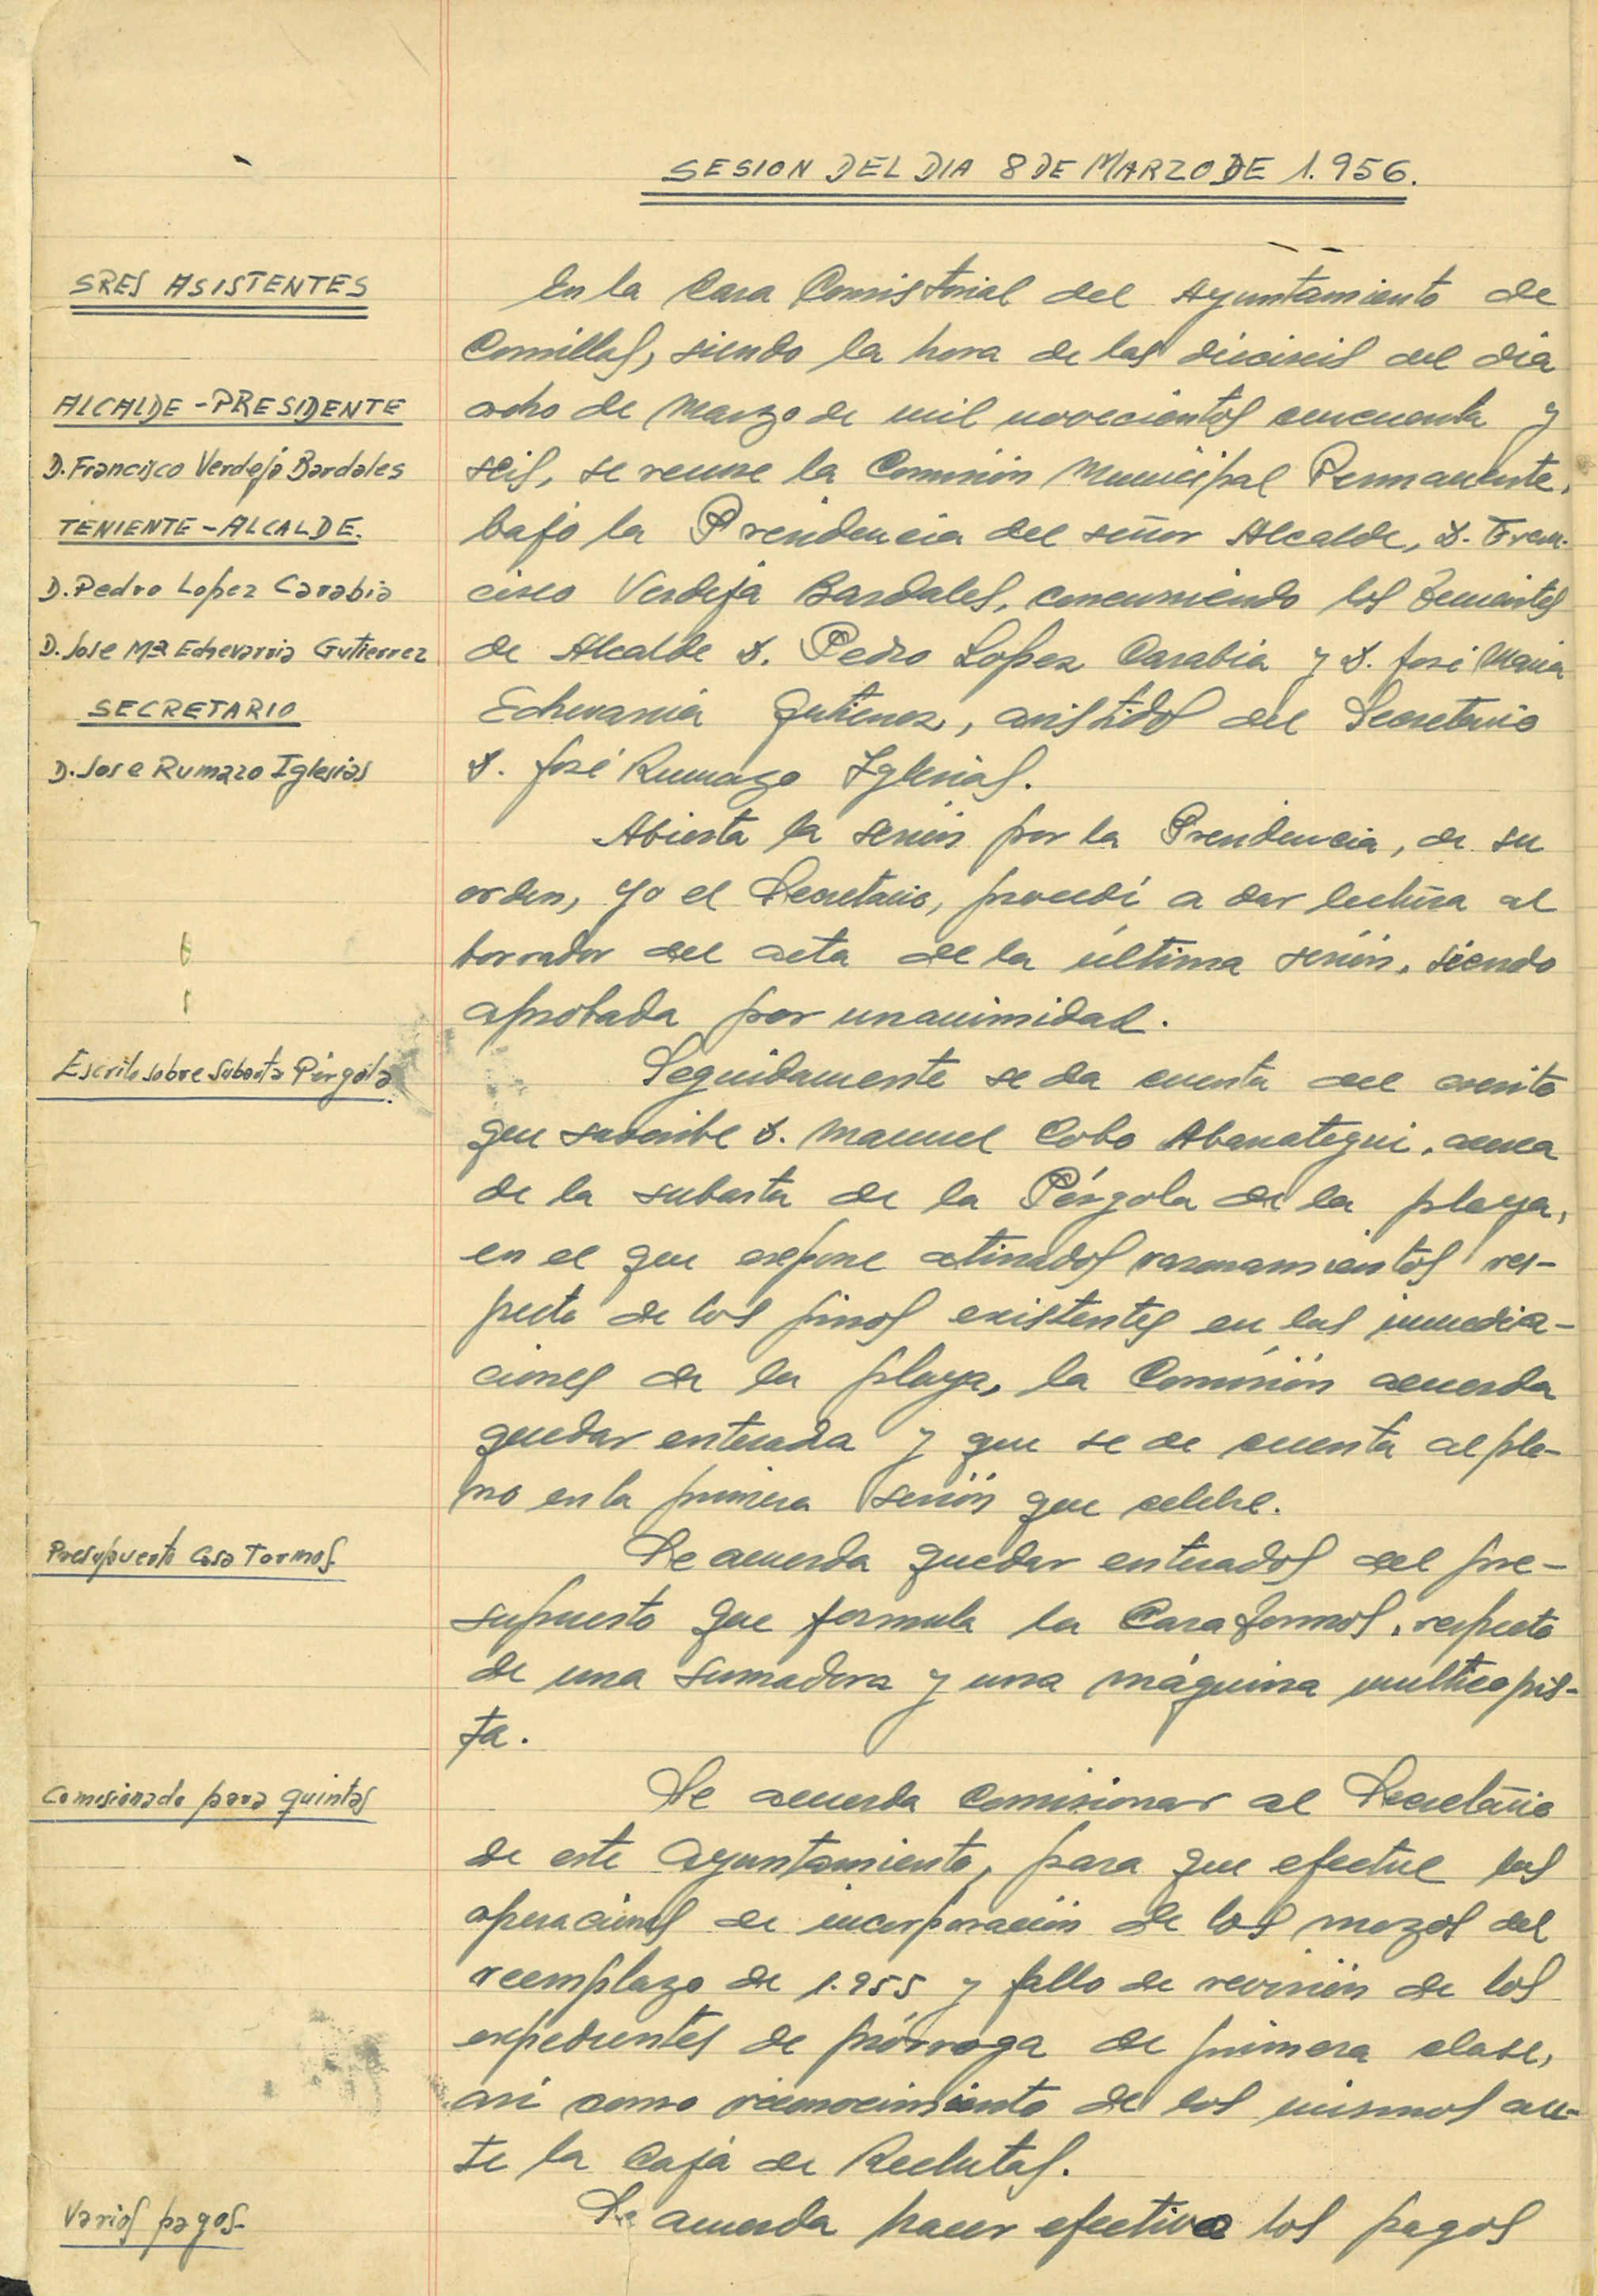 SESION DEL DIA 8 DE MARZO DE 1.956.
SRES ASISTENTES
ALCALDE-PRESIDENTE
D. Francisco Verdeja Bardales
TENIENTE-ALCALDE.
D. Pedro Lopez Carabia
D. Jose Mª Echevarria Gutierrez
SECRETARIO
D. Jose Rumazo Iglesias
En la Casa Consistorial del Ayuntamiento de
Comillas, siendo la hora de las dieciseis del dia
ocho de Marzo de mil novecientos cincuenta y
seis, se reune la Comisión Municipal Permanente,
bajo la Presidencia del señor Alcalde, D. Fran-
cisco Verdeja Bardales, concurriendo los Tenientes
de Alcalde D. Pedro Lopez Carabia y D. José Maria
Echevarria Gutierrez, asistidos del Secretario
D. José Rumazo Iglesias.
Abierta la sesión por la Presidencia, de su
orden, yo el Secretario, procedí a dar lectura al
borrador del acta de la última sesión, siendo
aprobada por unanimidad.
Escrito sobre subasta Pérgola.
Seguidamente se da cuenta del escrito
que suscribe D. Manuel Cobo Abanategui, acerca
de la subasta de la Pérgola de la playa,
en el que expone atinados razonamientos res-
pecto de los pinos existentes en las inmedia-
ciones de la playa, la Comisión acuerda
quedar enterada y que se de cuenta al ple-
no en la primera sesión que celebre.
Presupuesto Casa Tormos
Se acuerda quedar enterados del pre-
supuesto que formula la Casa Tormos, respecto
de una sumadora y una máquina multicopis-
ta.
Comisionado para quintas
Se acuerda comisionar al Secretario
de este Ayuntamiento, para que efectue las
operaciones de incorporación de los mozos del
reemplazo de 1.955 y fallo de revisión de los
expedientes de prórroga de primera clase,
asi como reconocimiento de los mismos an-
te la Caja de Reclutas.
Varios pagos-
Se acuerda hacer efectivo los pagos